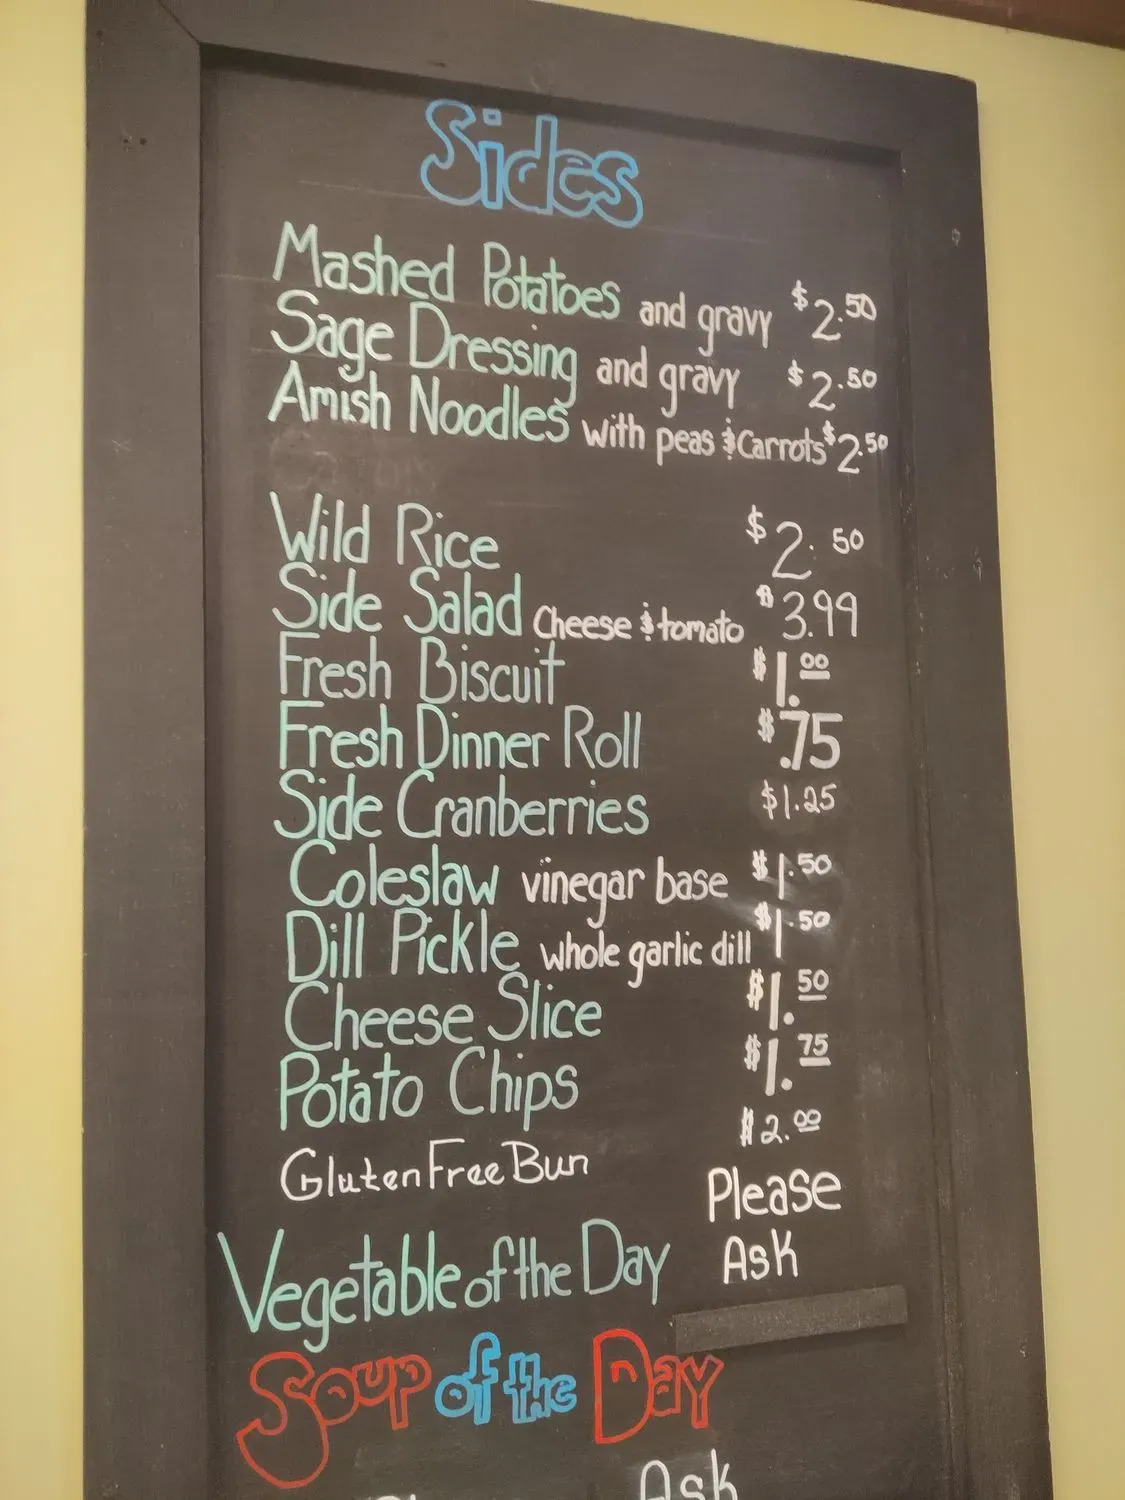 Sides
Mashed Potatoes and gravy $2.50
Sage Dressing and gravy $2.50
Amish Noodles with peas & Carrots $2.50
Wild Rice $2.50
Side Salad Cheese & tomato $3.99
Fresh Biscuit $1.00
Fresh Dinner Roll $.75
Side Cranberries $1.25
Coleslaw vinegar base $1.50
Dill Pickle whole garlic dill $1.50
Cheese Slice $1.50
Potato Chips $1.75
Gluten Free Bun $2.00
Vegetable of the Day Please
Ask
Soup of the Day
Ask